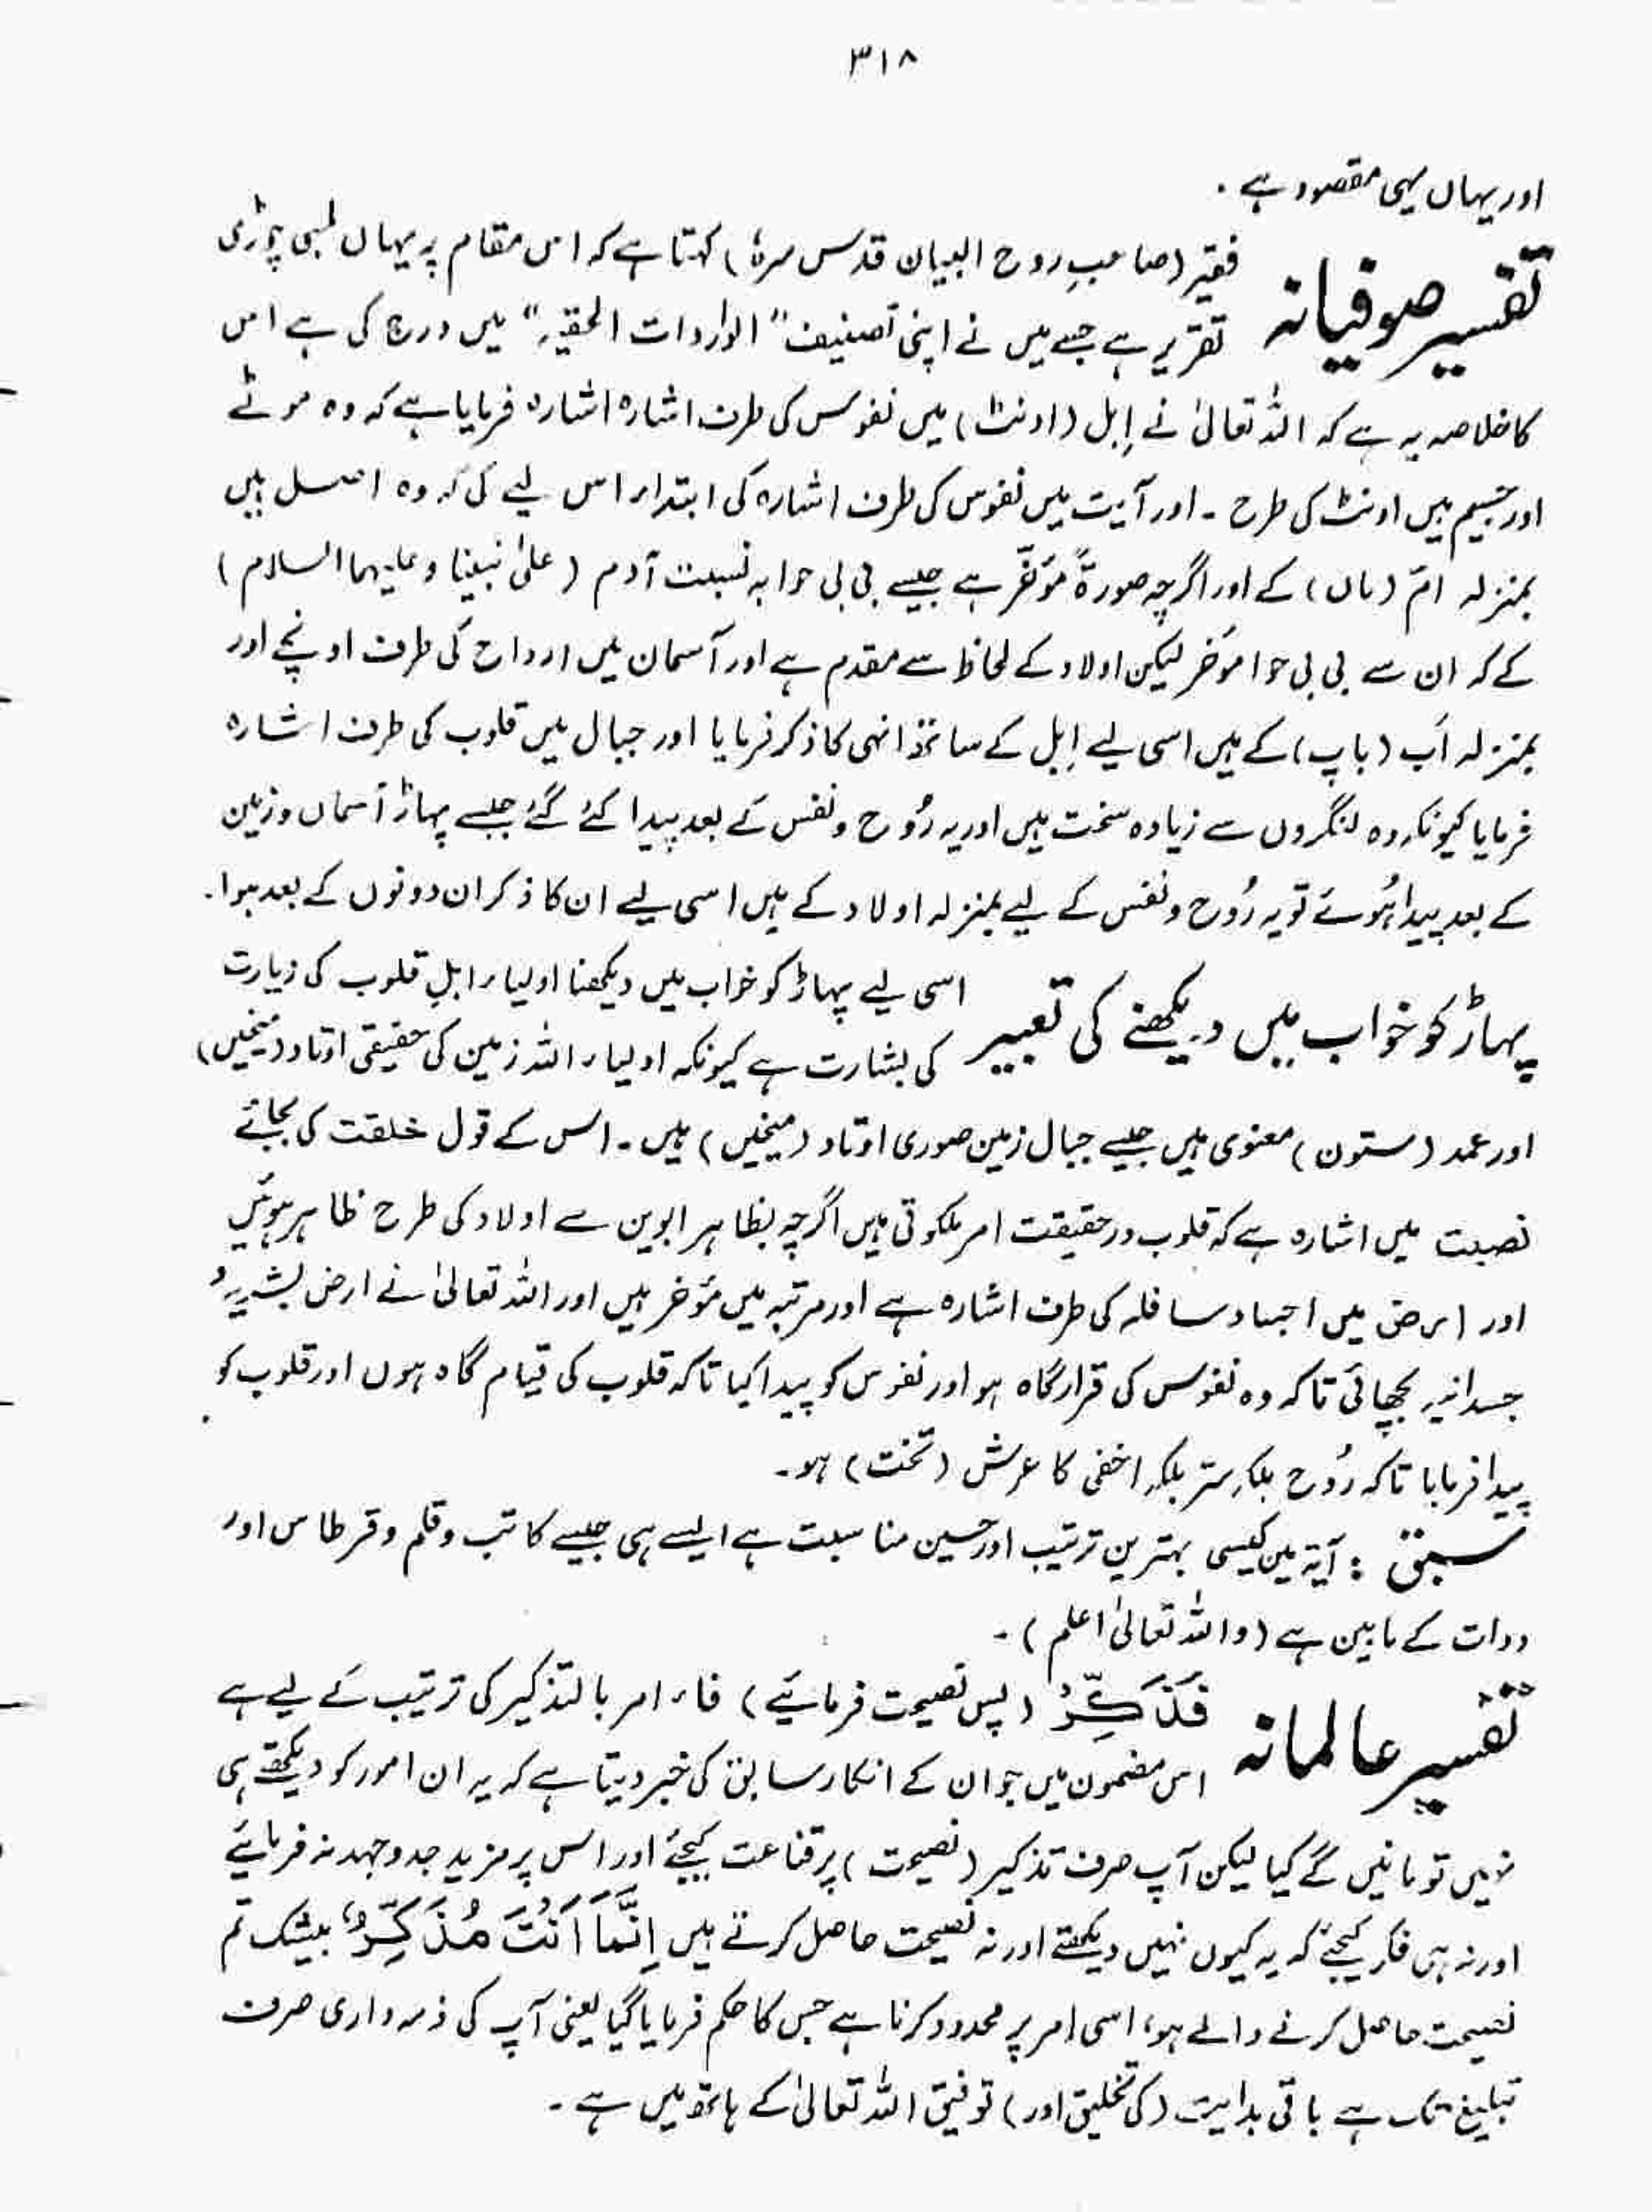 ۳۱۸
اور یہاں یہی مقصود ہے ۔
تفسیر صوفیانہ فقیر (صاحبِ روح البیان قدس سرہٗ) کہتا ہے کہ اس مقام پر یہاں لمبی چوڑی
تقریر ہے جسے میں نے اپنی تصنیف "الواردات الحقیہ" میں درج کی ہے اس
کا خلاصہ یہ ہے کہ اللہ تعالیٰ نے اِبل (اونٹ) میں نفوس کی طرف اشارہ اشارہ فرمایا ہے کہ وہ موٹے
اور جسیم ہیں اونٹ کی طرح ۔ اور آیت میں نفوس کی طرف اشارہ کی ابتداء اس لیے کی کہ وہ اصل ہیں
بمنزلہ امّ (ماں) کے اور اگرچہ صورۃً مؤخّر ہے جیسے بی بی حوا بہ نسبت آدم (علیٰ نبینا و علیہما السلام)
کے کہ ان سے بی بی حوا مؤخر لیکن اولاد کے لحاظ سے مقدم ہے اور آسمان میں ارواح کی طرف اونچے اور
بمنزلہ اَب (باپ) کے ہیں اسی لیے اِبل کے ساتھ انہی کا ذکر فرمایا اور جبال میں قلوب کی طرف اشارہ
فرمایا کیونکہ وہ لنگروں سے زیادہ سخت ہیں اور یہ رُوح و نفس کے بعد پیدا کئے گئے جیسے پہاڑ آسمان و زمین
کے بعد پیدا ہُوئے تو یہ رُوح و نفس کے لیے بمنزلہ اولاد کے ہیں اسی لیے ان کا ذکر ان دونوں کے بعد ہوا ۔
پہاڑ کو خواب میں دیکھنے کی تعبیر اسی لیے پہاڑ کو خواب میں دیکھنا اولیاء اہلِ قلوب کی زیارت
کی بشارت ہے کیونکہ اولیاء اللہ زمین کی حقیقی اوتاد (میخیں)
اور عمد (ستون) معنوی ہیں جیسے جبال زمین صوری اوتاد (میخیں) ہیں ۔ اس کے قول خلقت کی بجائے
نصبت میں اشارہ ہے کہ قلوب درحقیقت امر ملکوتی ہیں اگرچہ بظاہر ابوین سے اولاد کی طرح ظاہر ہوئیں
اور ارض میں اجساد سافلہ کی طرف اشارہ ہے اور مرتبہ میں مؤخر ہیں اور اللہ تعالیٰ نے ارض بشریہ و
جسدانیہ بچھائی تاکہ وہ نفوس کی قرارگاہ ہو اور نفوس کو پیدا کیا تاکہ قلوب کی قیام گاہ ہوں اور قلوب کو
پیدا فرمایا تاکہ رُوح بلکہ سّر بلکہ اخفی کا عرش (تخت) ہو ۔
سبق : آیۃ میں کیسی بہترین ترتیب اور حسین مناسبت ہے ایسے ہی جیسے کاتب و قلم و قرطاس اور
دوات کے مابین ہے (واللہ تعالیٰ اعلم) ۔
تفسیر عالمانہ فَذَكِّرْ (پس نصیحت فرمائیے) فاء امر بالتذکیر کی ترتیب کے لیے ہے
اس مضمون میں جو ان کے انکار سابق کی خبر دیتا ہے کہ یہ ان امور کو دیکھتے ہی
نہیں تو مانیں گے کیا لیکن آپ صرف تذکیر (نصیحت) پر قناعت کیجئے اور اس پر مزید جدوجہد نہ فرمائیے
اور نہ ہی فکر کیجئے کہ یہ کیوں نہیں دیکھتے اور نہ نصیحت حاصل کرتے ہیں اِنَّمَآ اَنْتَ مُذَكِّرٌ ، بیشک تم
نصیحت حاصل کرنے والے ہو ، اسی امر پر محدود کرنا ہے جس کا حکم فرمایا گیا یعنی آپ کی ذمہ داری صرف
تبلیغ تک ہے باقی ہدایت (کی تخلیق اور) توفیق اللہ تعالیٰ کے ہاتھ میں ہے ۔